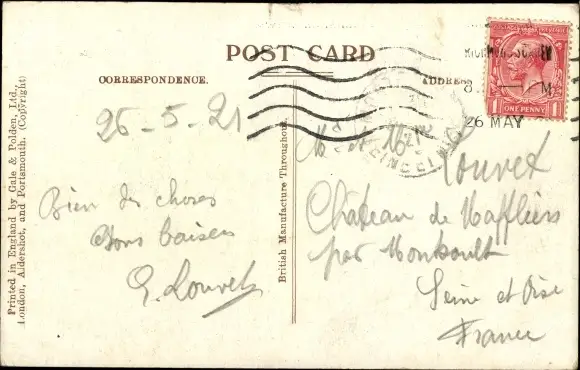 POST CARD
CORRESPONDENCE.
ADDRESS
26-5-21
Bien des choses
Bons baisers
G. Louvet
Printed in England by Gale & Polden, Ltd.,
London, Aldershot, and Portsmouth. (Copyright)
British Manufacture Throughout.
8 M
26 MAY
ONE PENNY
M. et Me
Louvet
Château de Maffliers
par Montsoult
Seine et Oise
France